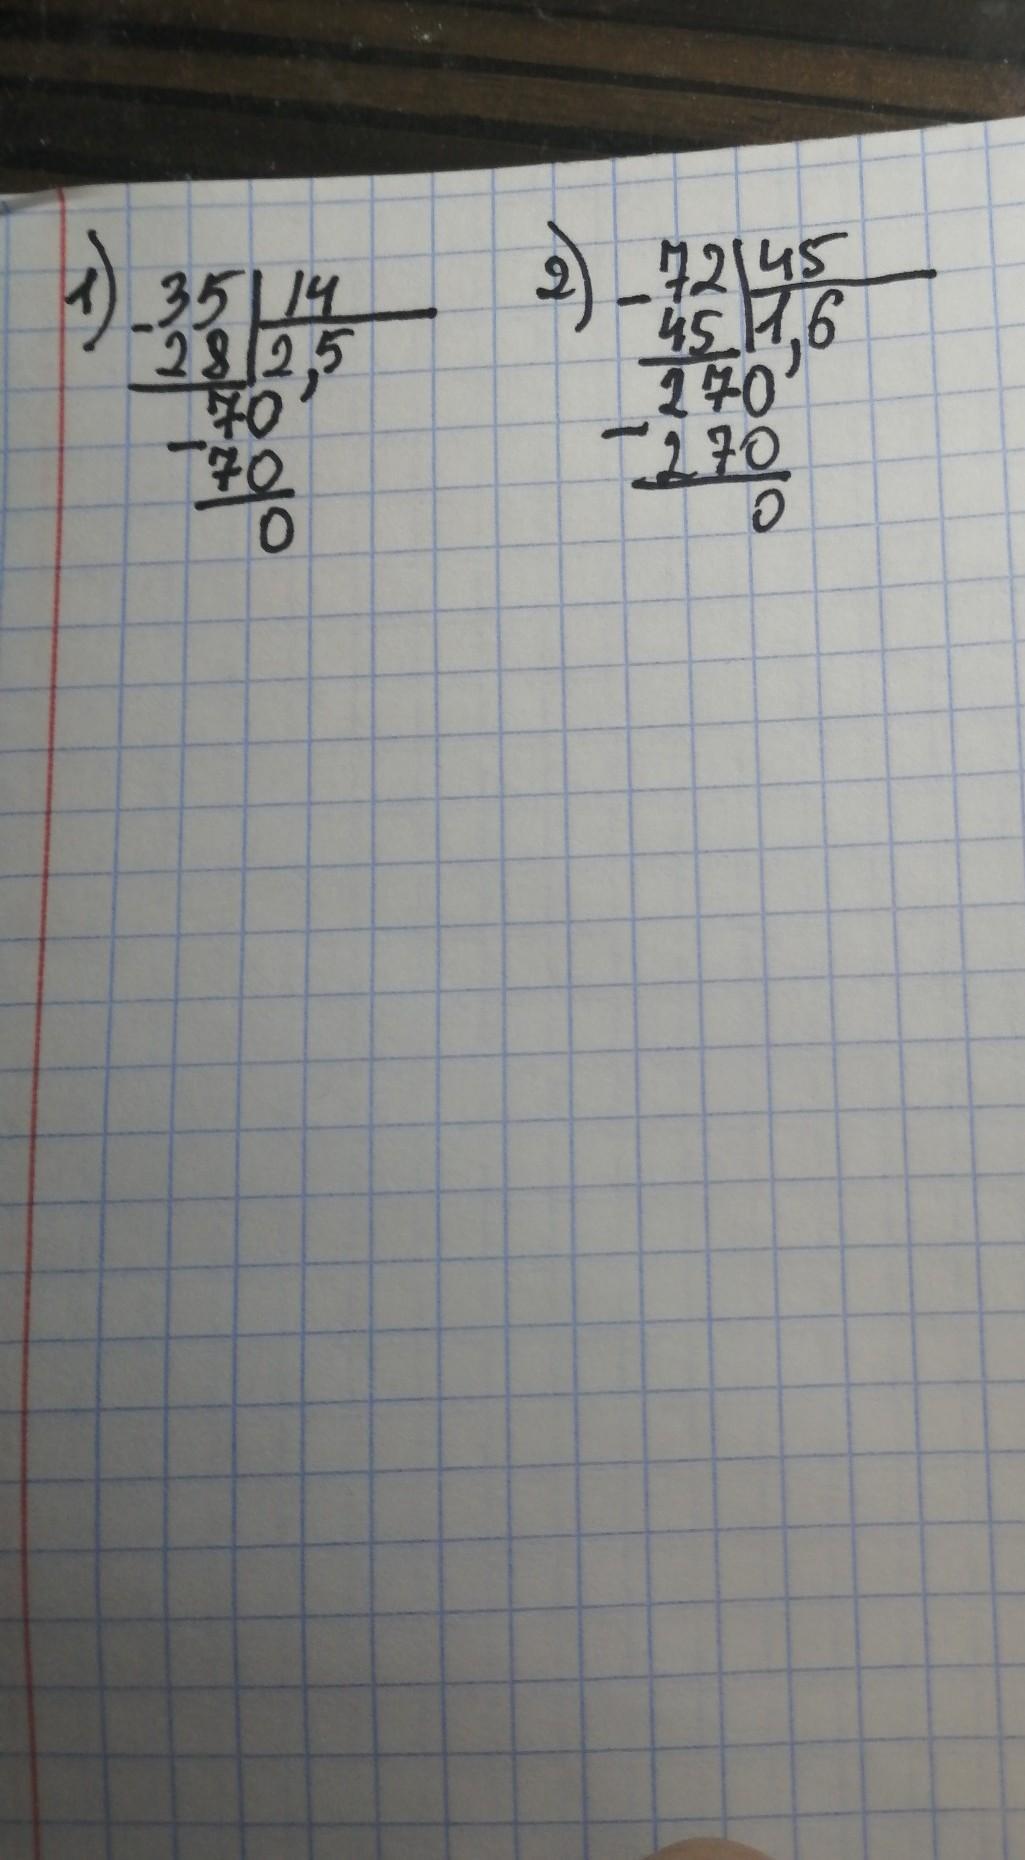 1) -35 | 14
28 | 2,5
70
- 70
0
2) - 72 | 45
45 | 1,6
270
- 270
0